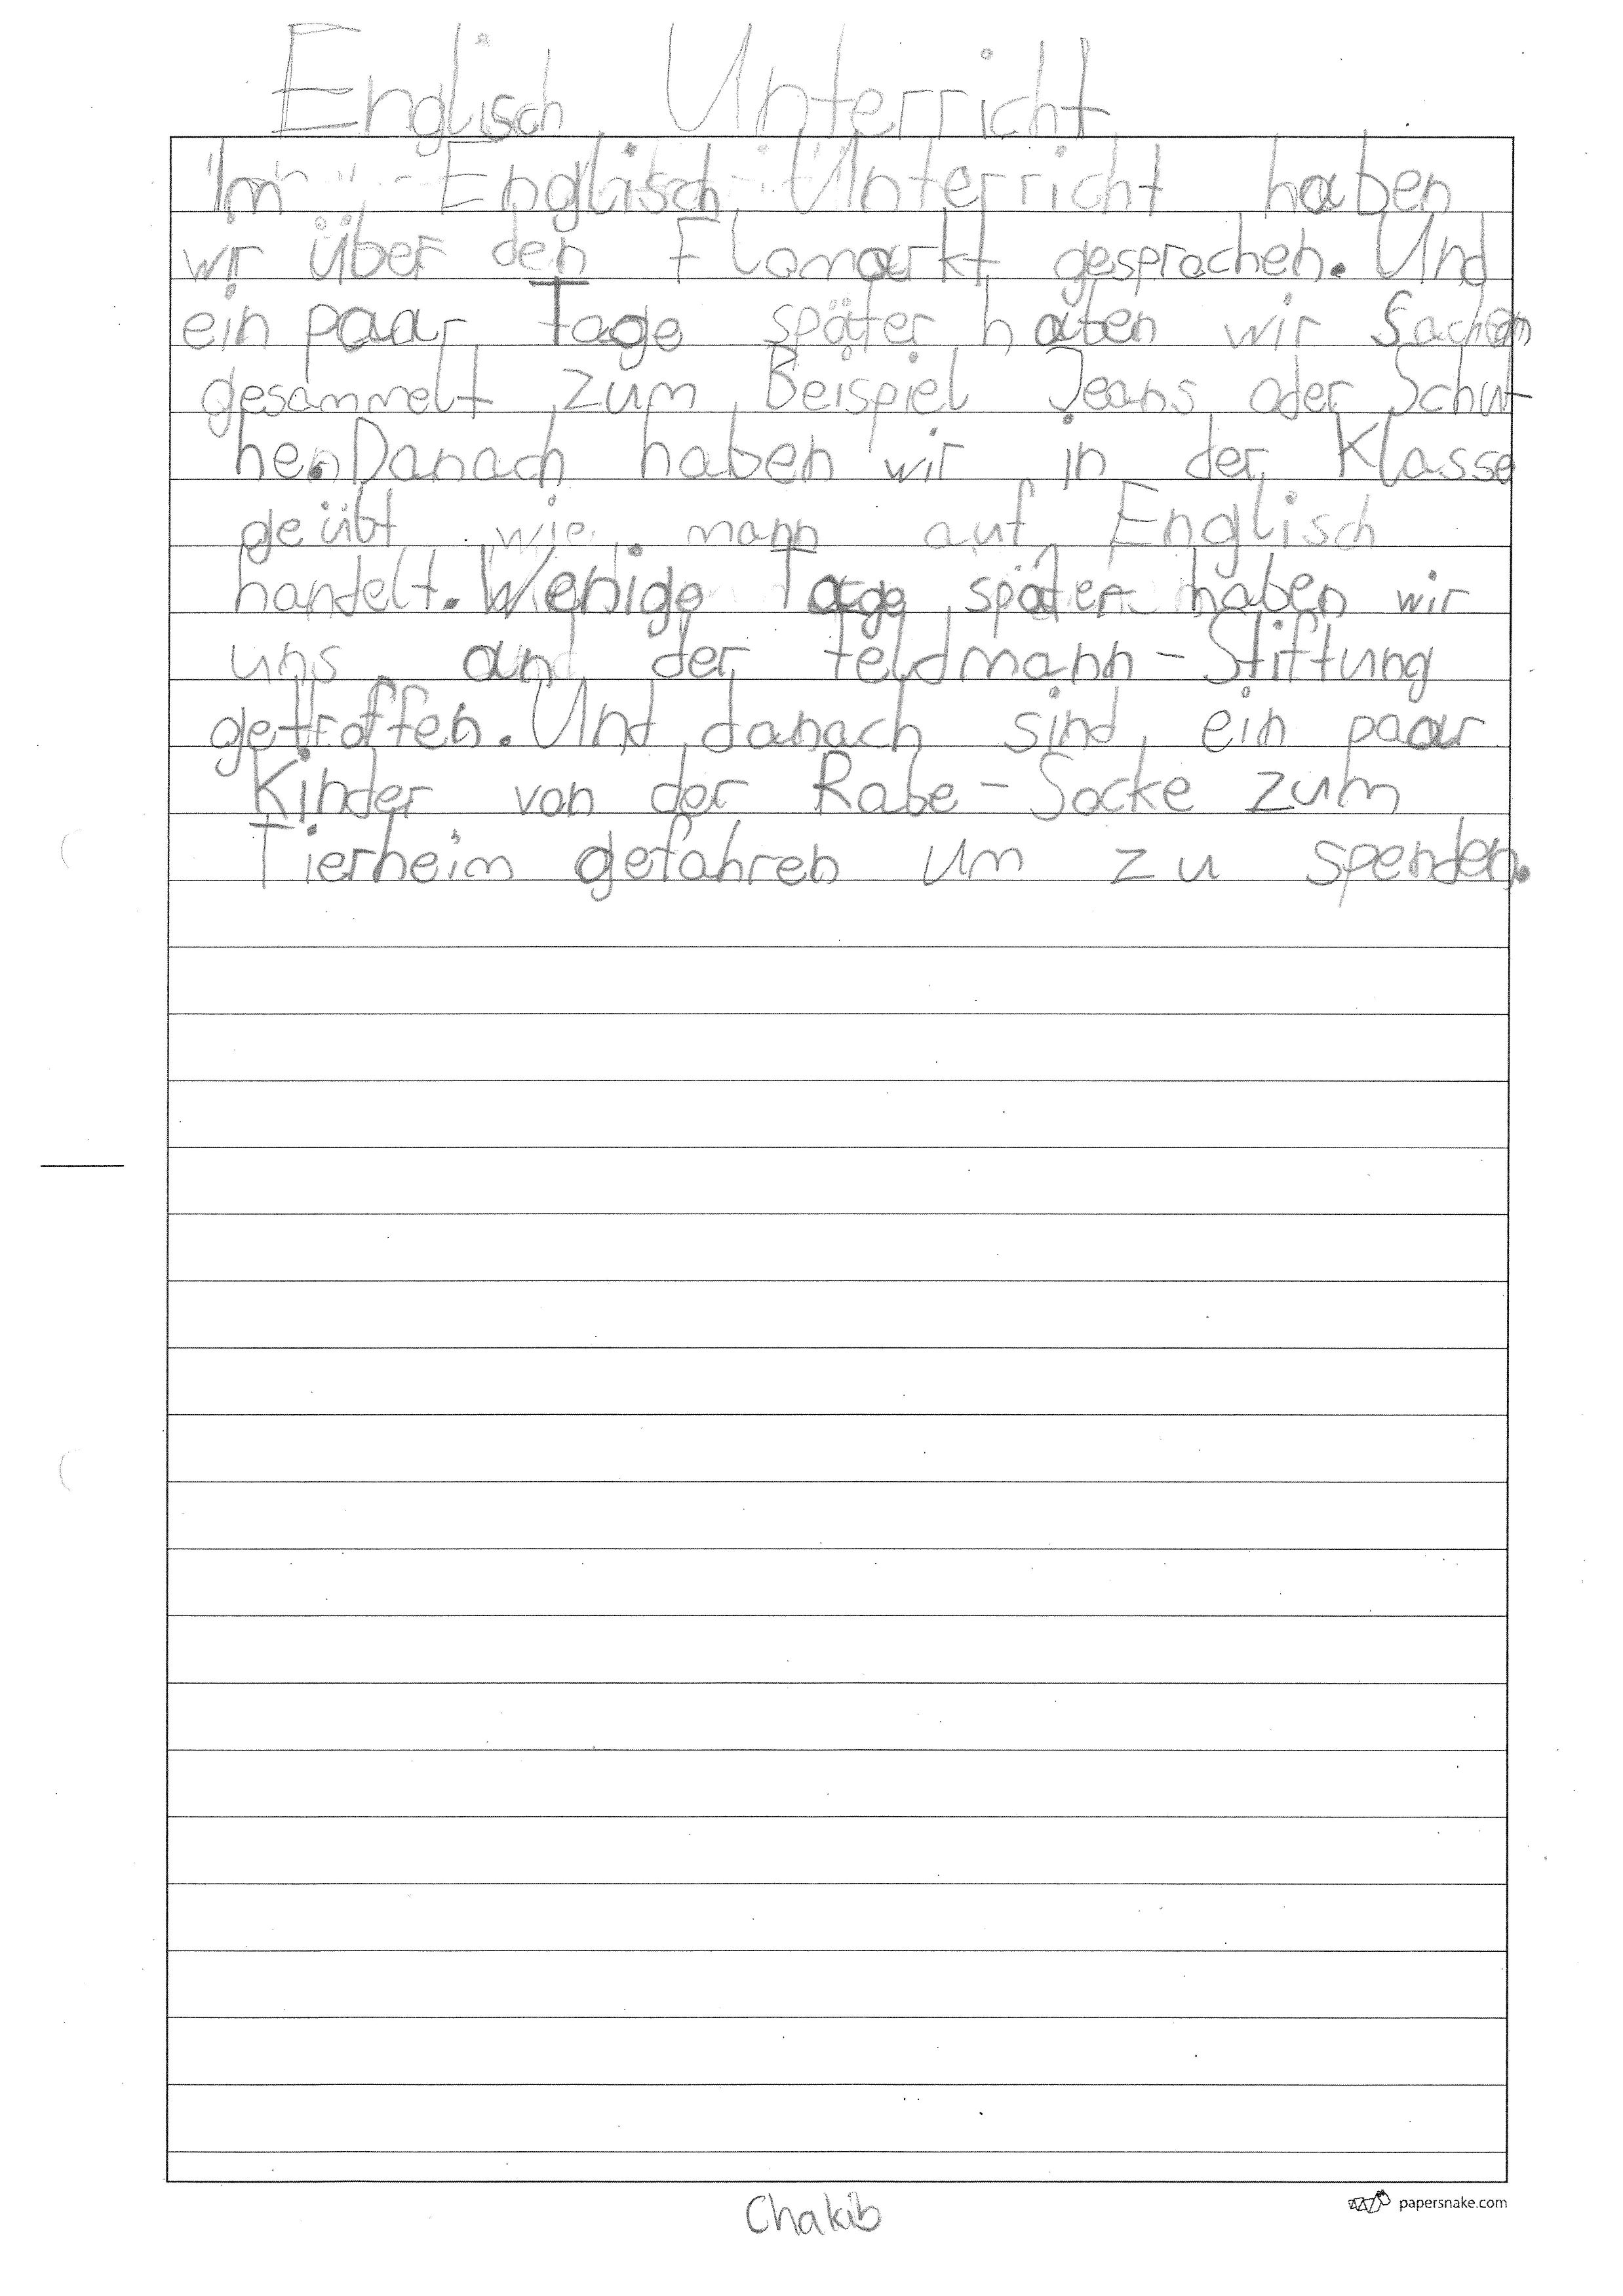 Englisch Unterricht
Im Englisch Unterricht haben
wir über den Flomarkt gesprochen. Und
ein paar Tage später haten wir Sachen
gesammelt zum Beispiel Jeans oder Schu-
hen. Danach haben wir in der Klasse
geübt wie mann auf Englisch
handelt. Wenige Tage später haben wir
uns an der feldmann-Stiftung
getroffen. Und danach sind ein paar
Kinder von der Rabe-Socke zum
Tierheim gefahren um zu spenden.
Chakib
papersnake.com